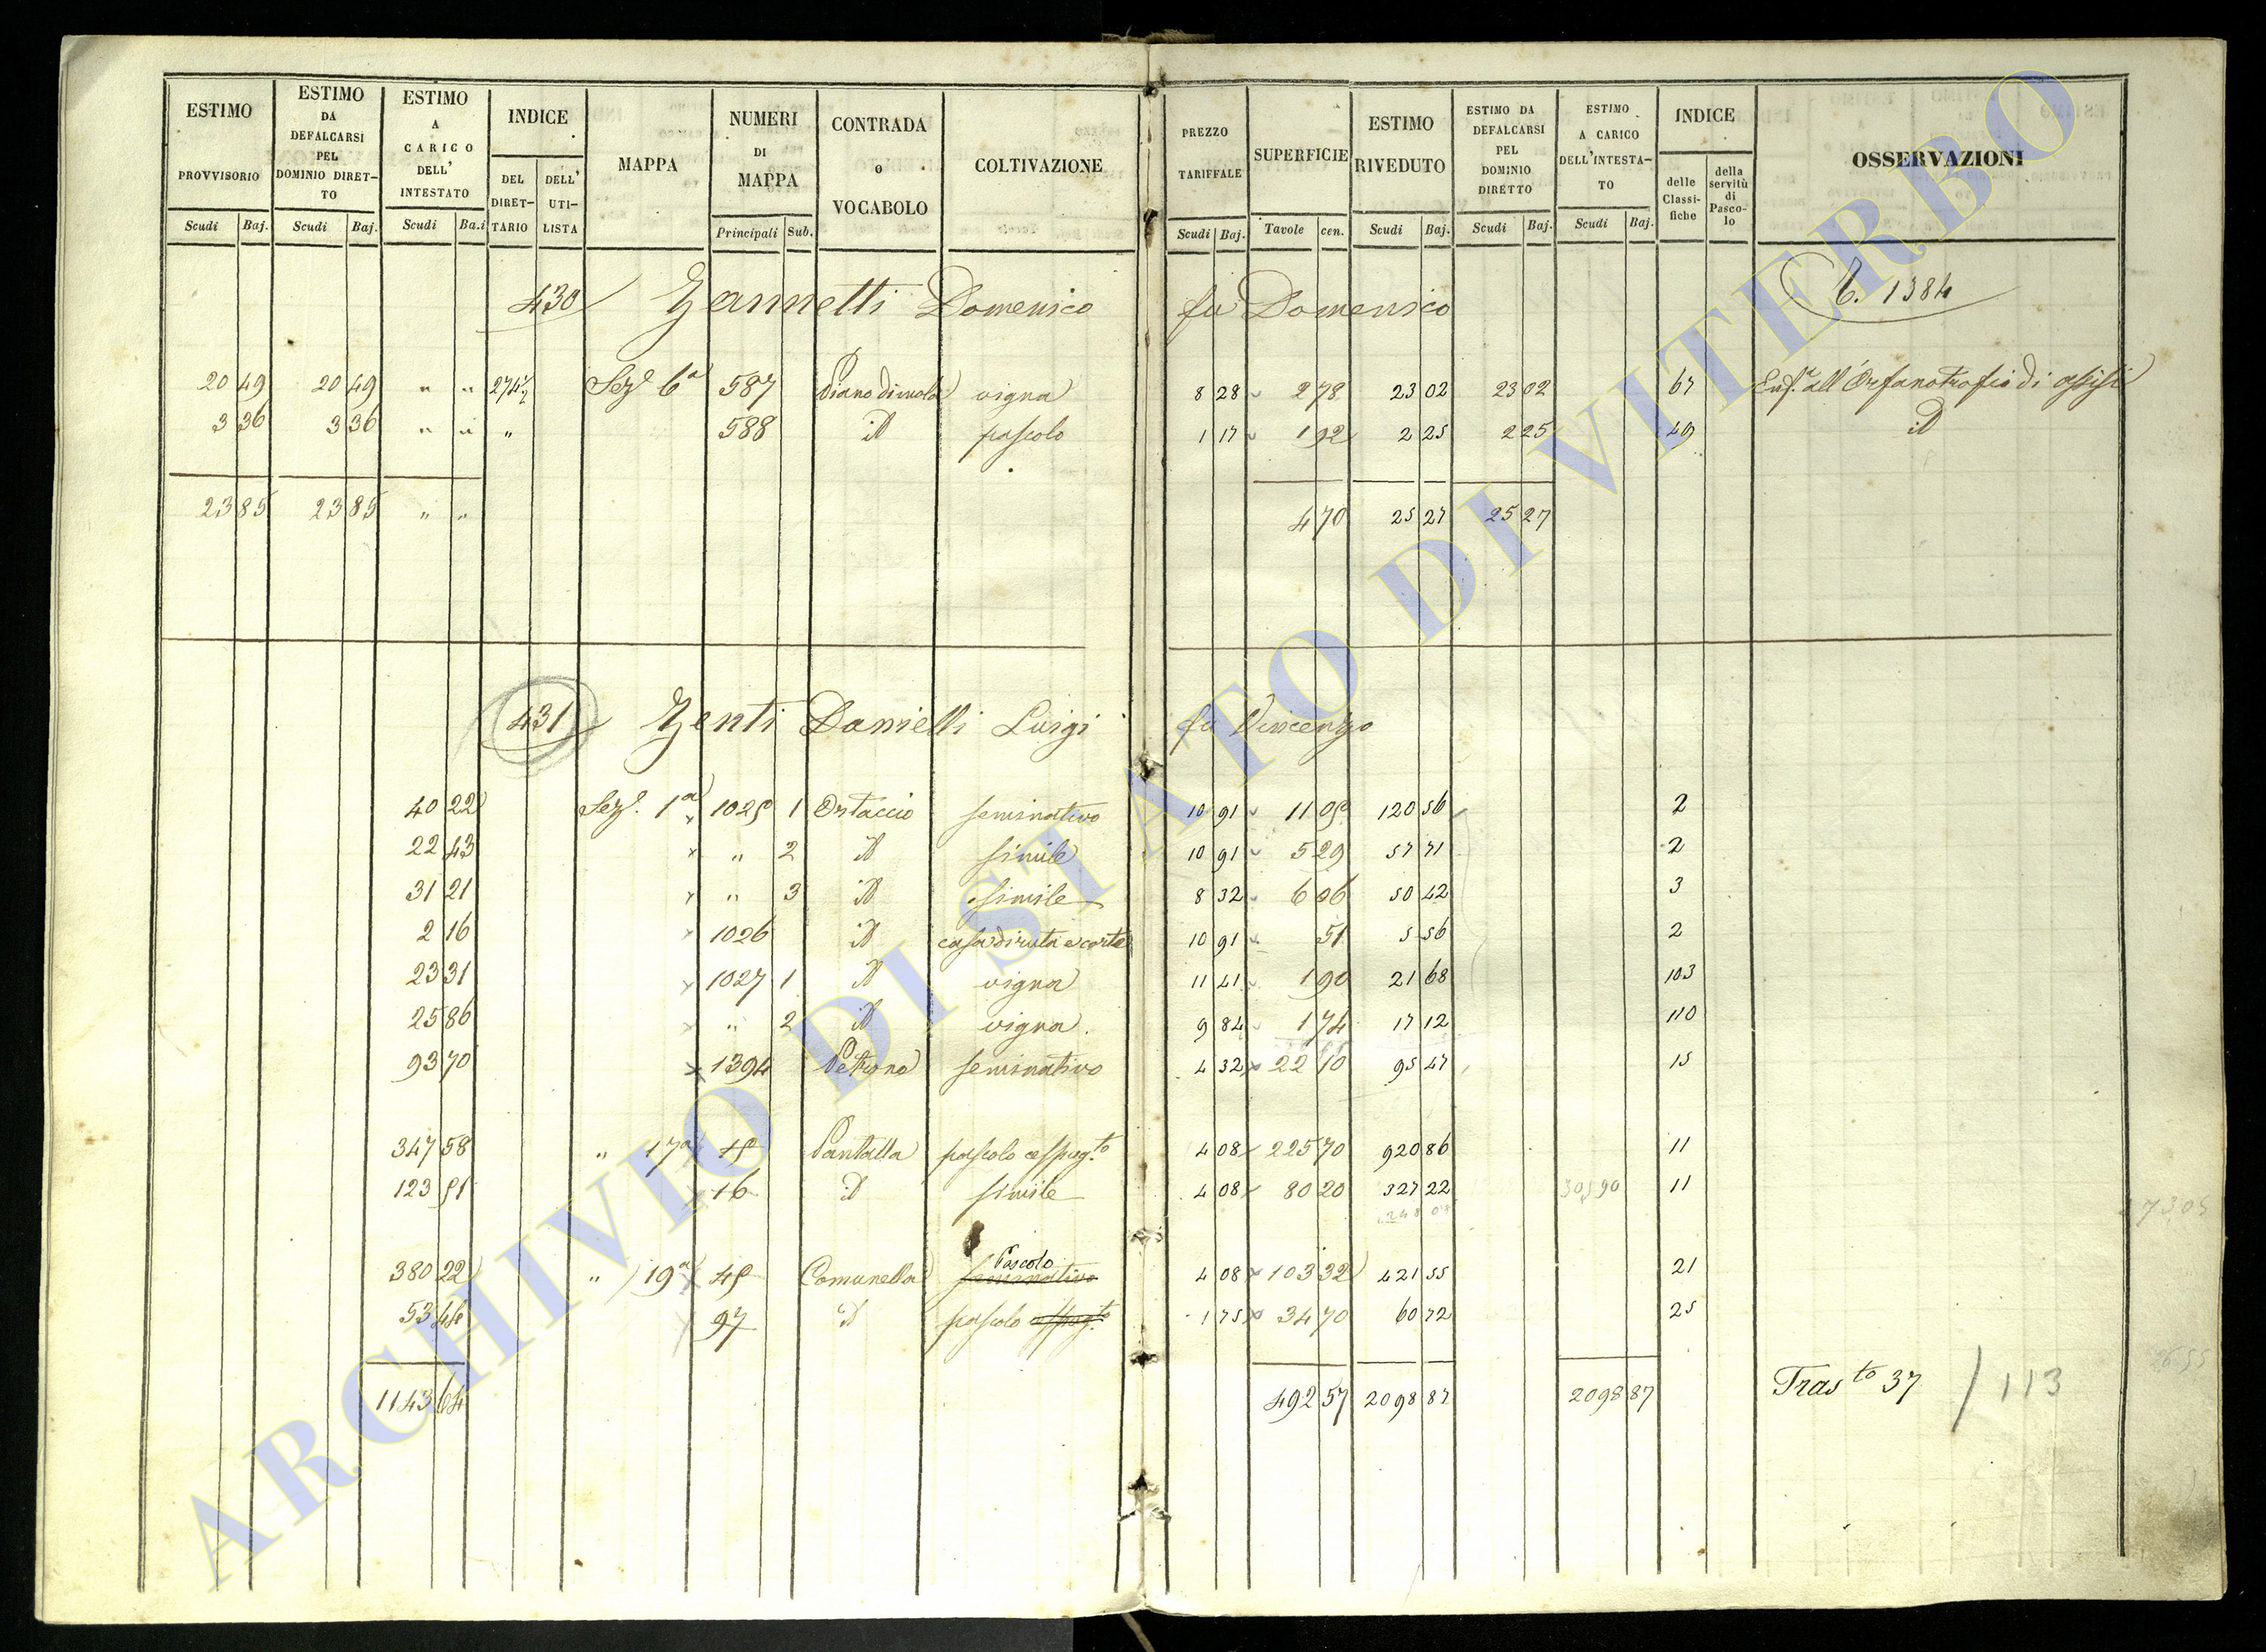 ESTIMO PROVVISORIO Scudi Baj.
ESTIMO DA DEFALCARSI PEL DOMINIO DIRET- TO Scudi Baj.
ESTIMO A CARICO DELL' INTESTATO Scudi Ba.i
INDICE DEL DIRET- TARIO DELL' UTI- LISTA
MAPPA
NUMERI DI MAPPA Principali Sub.
CONTRADA o VOCABOLO
COLTIVAZIONE
PREZZO TARIFFALE Scudi Baj.
SUPERFICIE Tavole cen.
ESTIMO RIVEDUTO Scudi Baj.
ESTIMO DA DEFALCARSI PEL DOMINIO DIRETTO Scudi Baj.
ESTIMO A CARICO DELL'INTESTA- TO Scudi Baj.
INDICE delle Classi- fiche della servitù di Pasco- lo
OSSERVAZIONI
430 Zannetti Domenico fu Domenico 1384
20 49 20 49 " " 274 1/2 Sez.e 6a 587 Piano di mola vigna 8 28 2 78 23 02 23 02 67 Enf.a all'Orfanotrofio di Assisi
3 36 3 36 " " " 588 id pascolo 1 17 1 92 2 25 2 25 40 id
23 85 23 85 " " 4 70 25 27 25 27
431 Zenti Danielli Luigi fu Vincenzo
40 22 Sez.e 1a 1025 1 Ortaccio seminativo 10 91 11 05 120 56 2
22 43 " 2 id simile 10 91 5 29 57 71 2
31 21 " 3 id simile 8 32 6 06 50 42 3
2 16 1026 id casa diruta e corte 10 91 51 5 56 2
23 31 1027 1 id vigna 11 41 1 90 21 68 103
25 86 " 2 id vigna 9 84 1 74 17 12 110
93 70 1394 seminativo 4 32 22 10 95 47 15
347 58 " 17a 15 Pantalla pascolo cespug.to 4 08 225 70 920 86 11
123 51 16 id simile 4 08 80 20 327 22 11
380 22 " 19a 45 Comunella Pascolo seminativo 4 08 103 32 421 55 21
53 44 97 id pascolo cespug.to 1 75 34 70 60 72 25
1143 64 492 57 2098 87 2098 87 Tras.to 37 / 113
ARCHIVIO DI STATO DI VITERBO